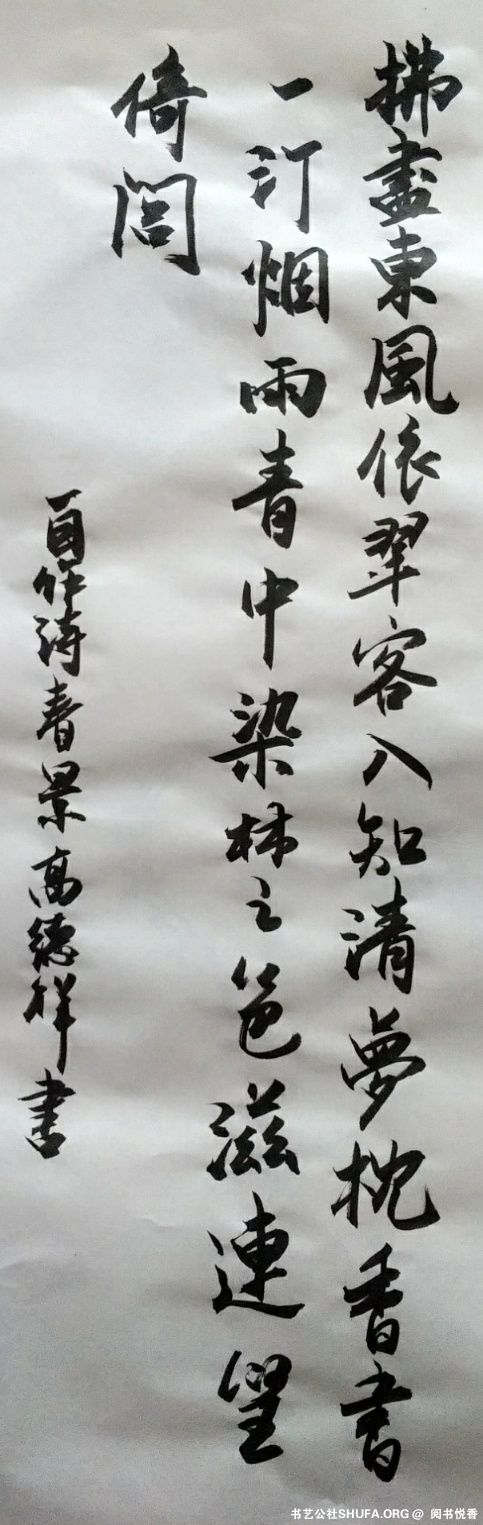 拂盡東風依翠客入知清夢枕香書
一汀烟雨青中染林之色滋連望
倚閣
自作詩春景高德祥书
书艺公社SHUFA.ORG @ 阅书悦香